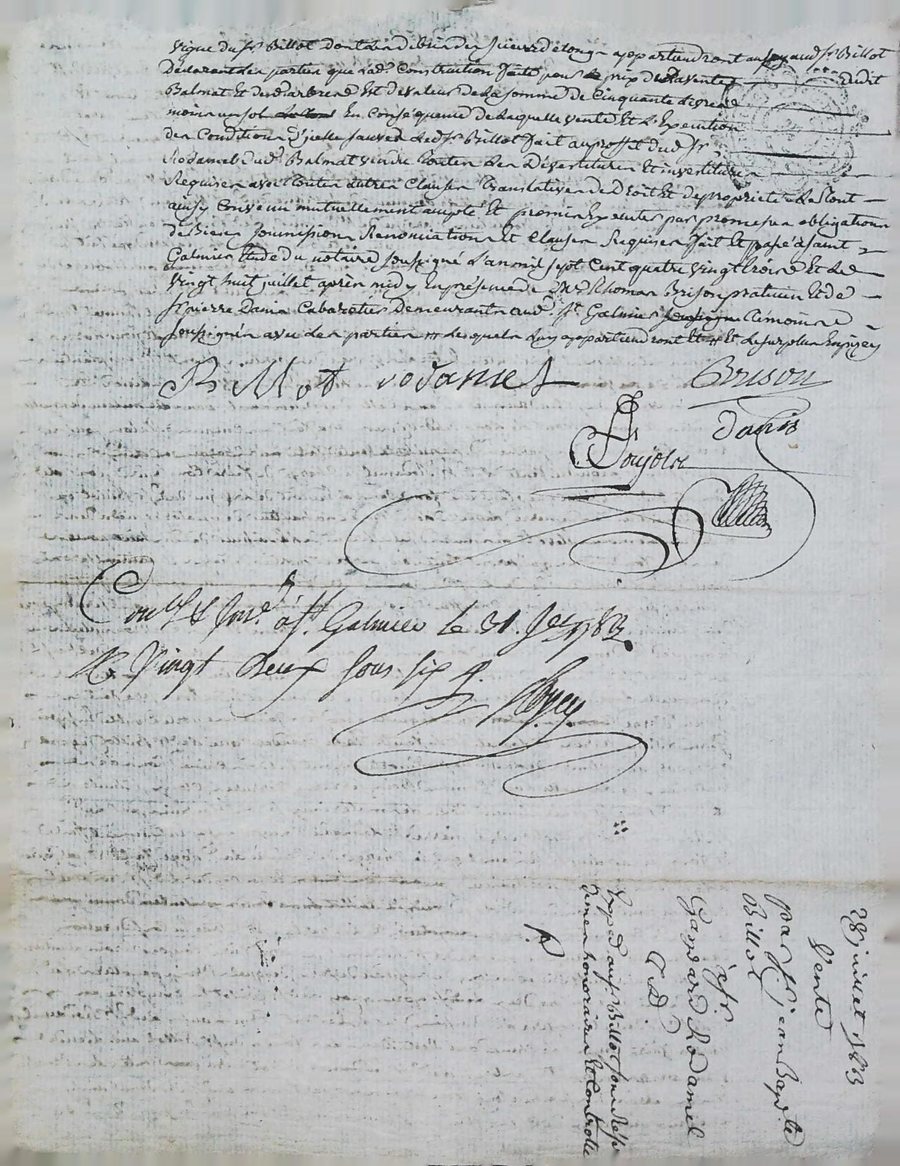 vigne du sr Billot dont en debvinder appartiendront au aud sr Billot
Declarant les parties que lad. Construction fait pour le prix de la vente dudit
Balmat et de l'arbrene Est de valeur de la somme de Cinquante livres
moins un sol En Conséquence de laquelle vente Et Expedition
des Conditions d'icelle led sr Billot fait au proffit dud sr
Rodamel dud. Balmat vendu toutes les dévestitures et investitures
Requises avec toutes autres Clauses translatives de droit Et de proprieté
ainsy Convenu mutuellement accepté Et promis Executer par promesses obligation
de Biens soumissions Renonciations Et Clauses Requises fait Et passé a saint
Galmier Etude du notaire soussigné L'an mil sept Cent quatre vingt trois Et le
vingt huit juillet après midy En présence de Me Thomas Brison praticien Et de
sr pierre Danis Cabaretier Demeurants aud. St. Galmier témoins
soussignés avec les parties lesquels luy appartiendront Et le surplus
Billot rodamel Brison
danis
Poujolas
Conlé & Insé à St. Galmier le 31. Jet 1783.
R. Vingt deux sous six d.
28 juillet 1783
Vente
par sr jean Bapte
Billot
a sr
Gaspard Rodamel
C. D.
Exped au sr Billot
honoraires Et Controlle